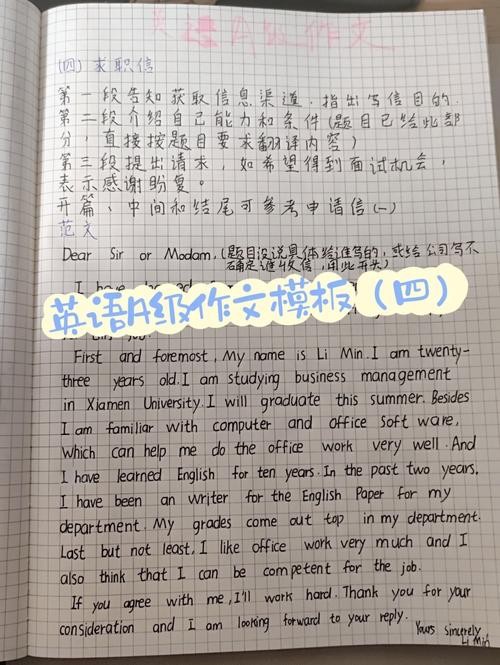 英语A级作文
(四)求职信
第一段告知获取信息渠道,指出写信目的.
第二段介绍自己能力和条件(题目已给此部
分,直接按题目要求翻译内容)
第三段提出请求,如希望得到面试机会,
表示感谢盼复。
开篇、中间和结尾可参考申请信(一)
范文
Dear Sir or Modam,(题目没说具体给谁写的,或给公司写不
确定谁收信,用此开头)
I have
英语A级作文模板(四)
First and foremost, My name is Li Min. I am twenty-
three years old. I am studying business management
in Xiamen University. I will graduate this summer. Besides
I am familiar with computer and office Soft ware,
which can help me do the office work very well. And
I have learned English for ten years. In the past two years,
I have been an writer for the English Paper for my
department. My grades come out top in my department.
Last but not least, I like office work very much and I
also think that I can be competent for the job.
If you agree with me, I'll work hard. Thank you for your
consideration and I am looking forward to your reply.
Yours sincerely
Li Min